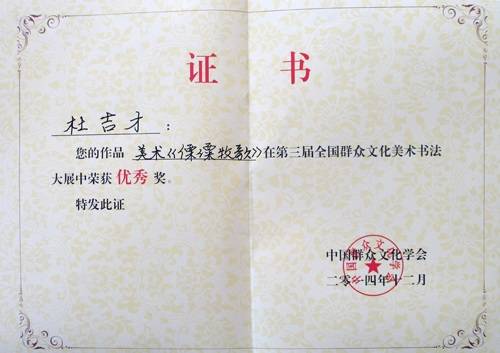 证书
杜吉才：
您的作品 美术《傈僳牧歌》在第三届全国群众文化美术书法
大展中荣获 优秀 奖。
特发此证
中国群众文化学会
二〇一四年十二月
中国群众文化学会